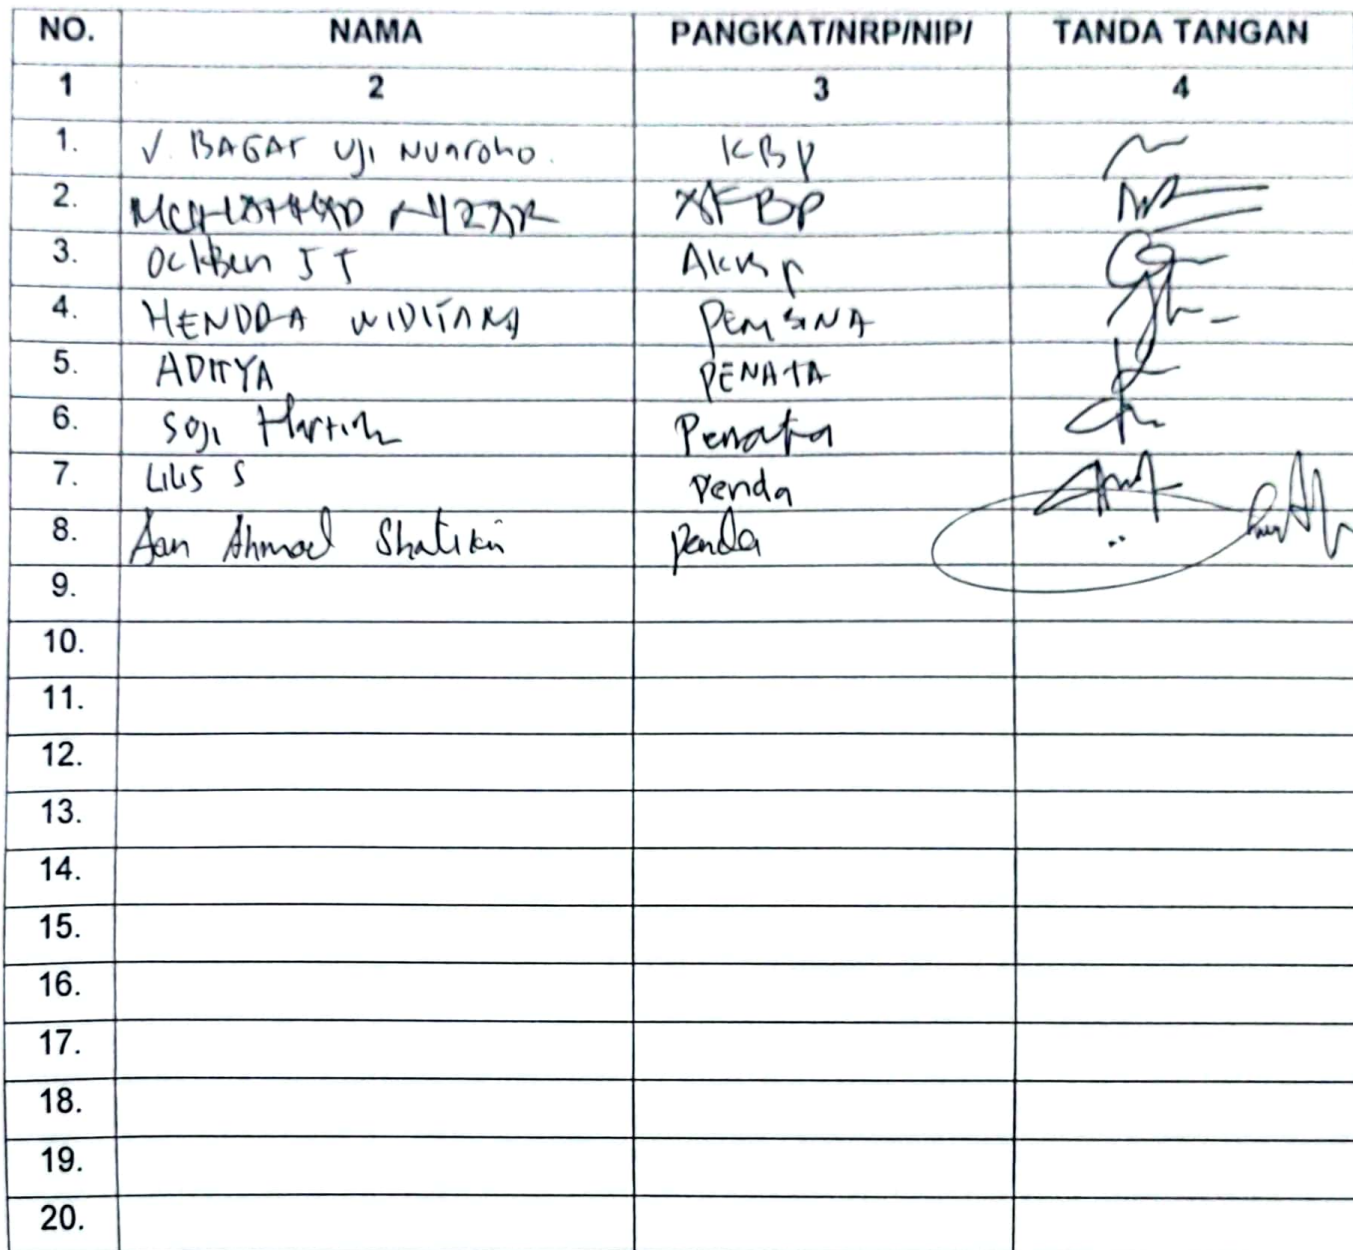 NO. NAMA PANGKAT/NRP/NIP/ TANDA TANGAN
1 2 3 4
1. V. BAGAS UJI NUGROHO. KBP
2. MOHAMMAD NIZAR AKBP
3. AKBP
4. HENDRA PEMBINA
5. ADITYA PENATA
6. Soji Penata
7. Lilis S Penda
8. Aan Ahmad penda
9.
10.
11.
12.
13.
14.
15.
16.
17.
18.
19.
20.